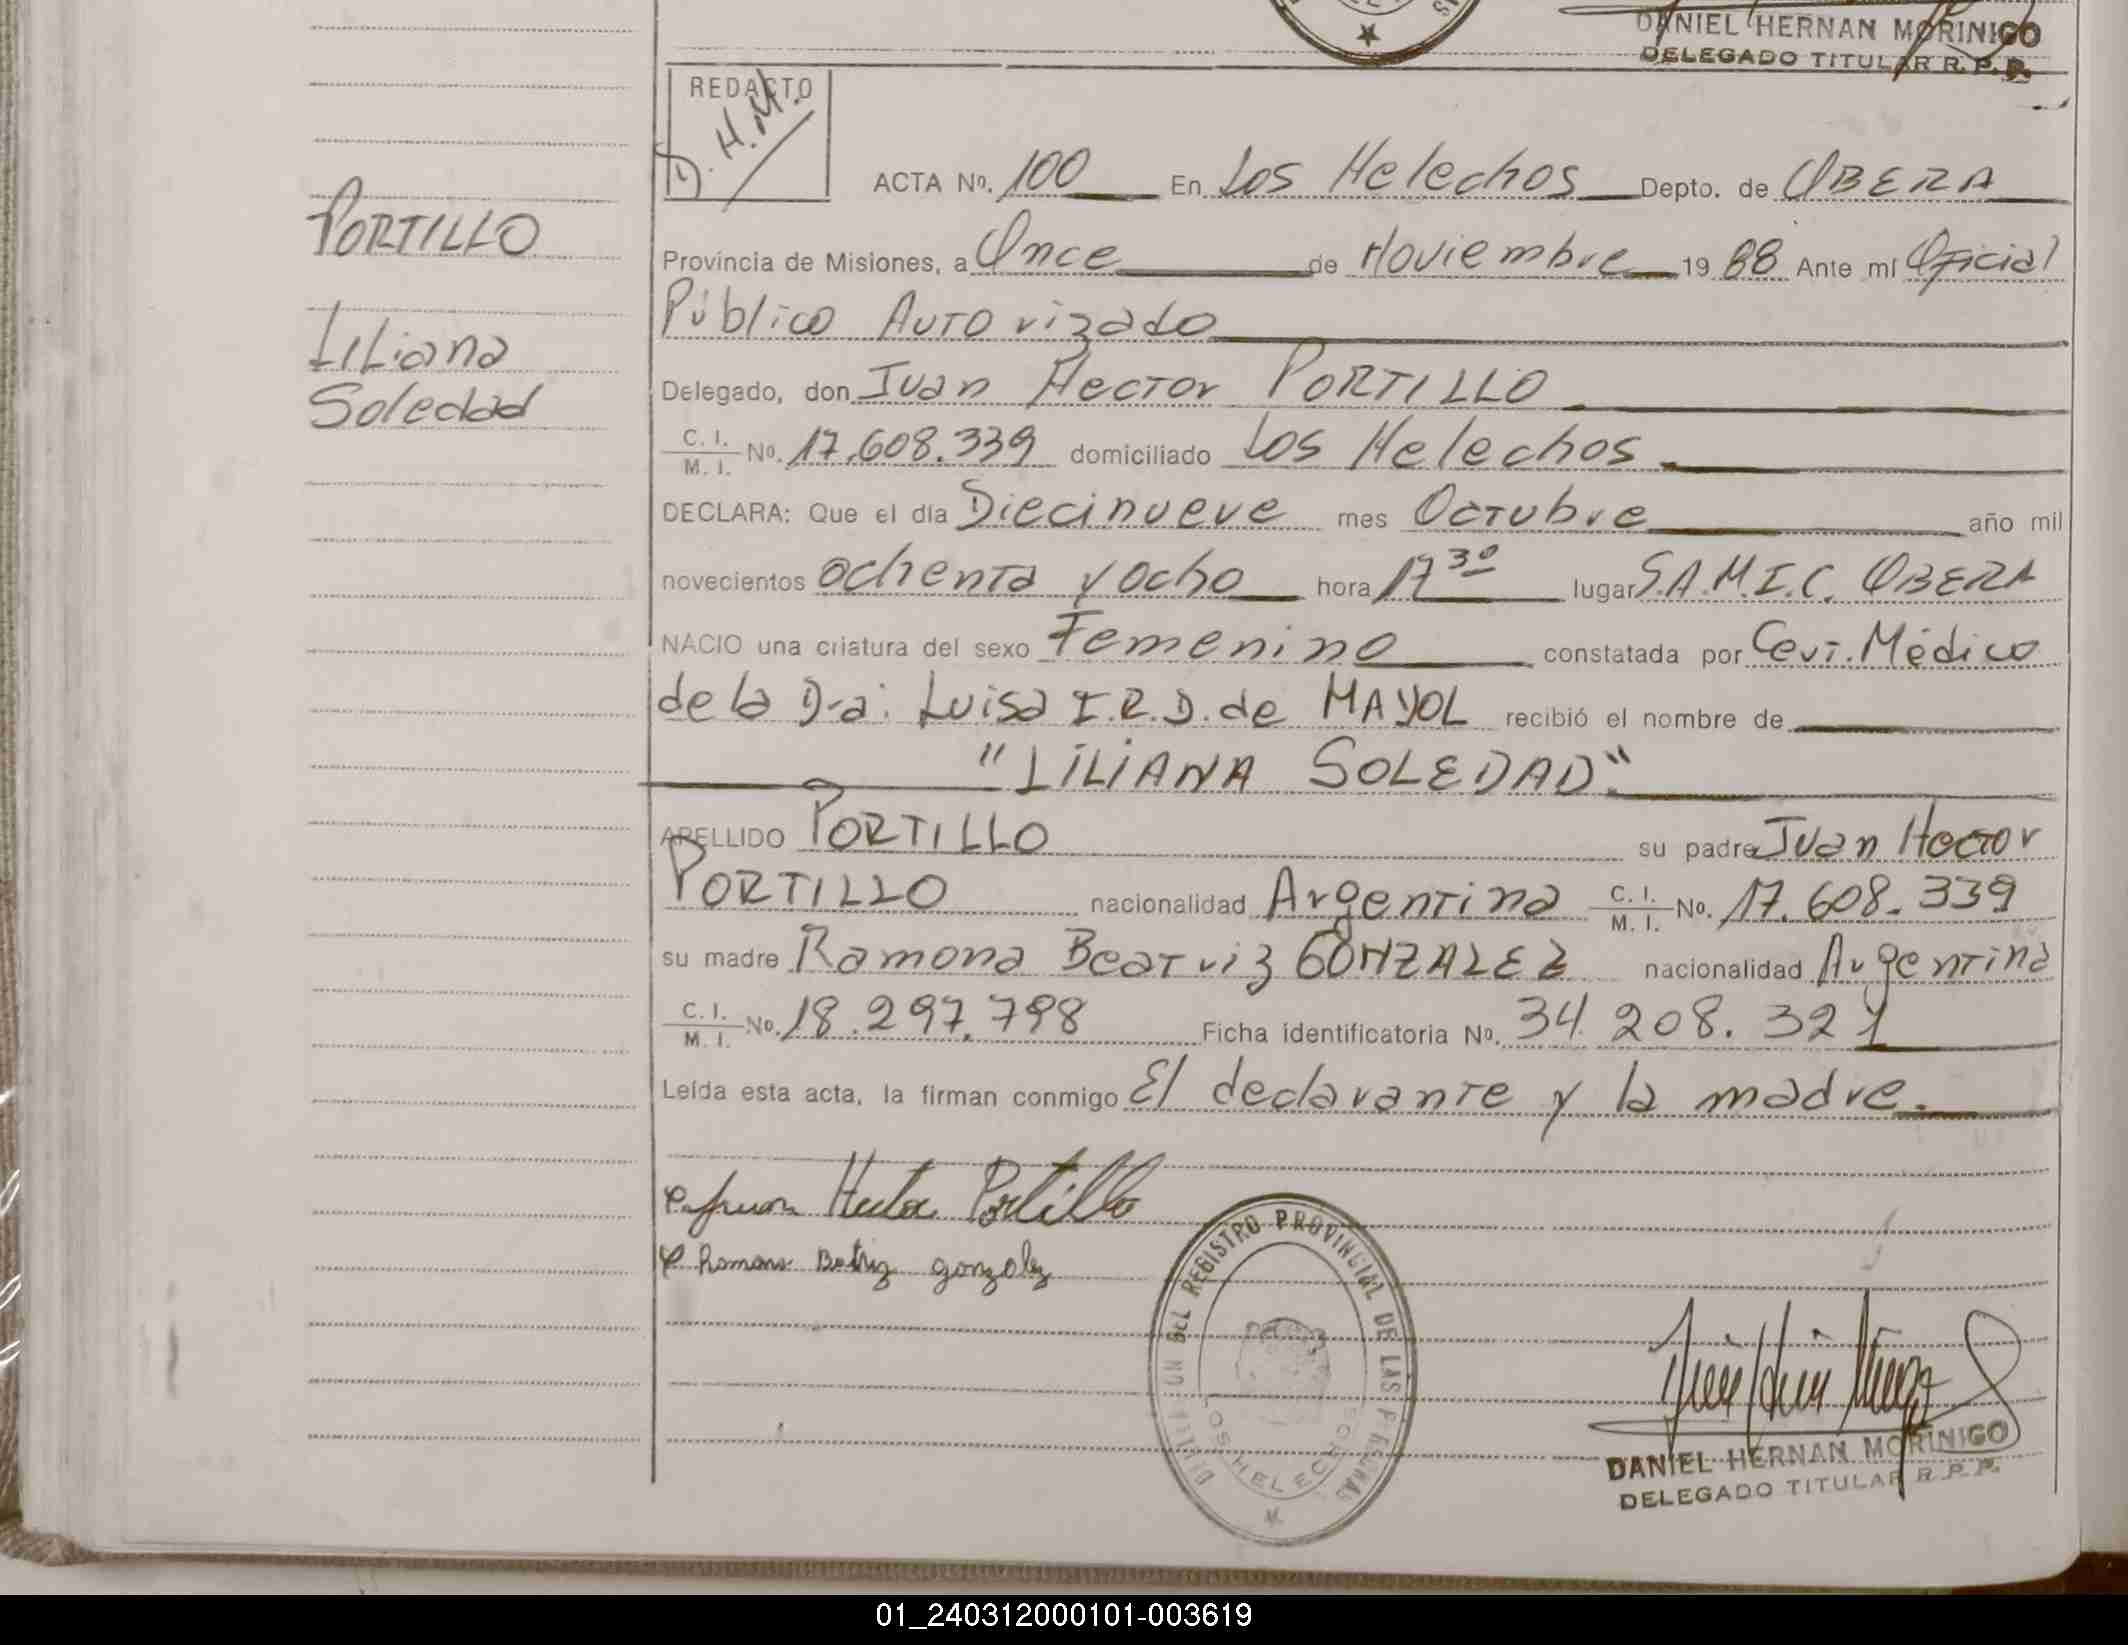 DANIEL HERNAN MORINIGO
DELEGADO TITULAR R. P. P.
REDACTO
D. H. M.
ACTA Nº. 100 En Los Helechos Depto. de OBERA
PORTILLO
Liliana
Soledad
Provincia de Misiones, a Once de Noviembre 19 88 Ante mí Oficial
Público Autorizado
Delegado, don Juan Hector PORTILLO
C. I.
M. I. Nº. 17.608.339 domiciliado Los Helechos
DECLARA: Que el día Diecinueve mes Octubre año mil
novecientos ochenta y ocho hora 17 30 lugar S.A.M.I.C. OBERA
NACIO una criatura del sexo Femenino constatada por Cert. Médico
de la Dra: Luisa I.R.D. de MAYOL recibió el nombre de
"LILIANA SOLEDAD".
APELLIDO PORTILLO su padre Juan Hector
PORTILLO nacionalidad Argentina C. I.
M. I. Nº. 17.608.339
su madre Ramona Beatriz GONZALEZ nacionalidad Argentina
C. I.
M. I. Nº. 18.297.798 Ficha identificatoria Nº. 34.208.321
Leída esta acta, la firman conmigo El declarante y la madre.
Juan Hector Portillo
Ramona Beatriz gonzalez
DIVISION DEL REGISTRO PROVINCIAL DE LAS PERSONAS
LOS HELECHOS
DANIEL HERNAN MORINIGO
DELEGADO TITULAR R. P. P.
01_240312000101-003619